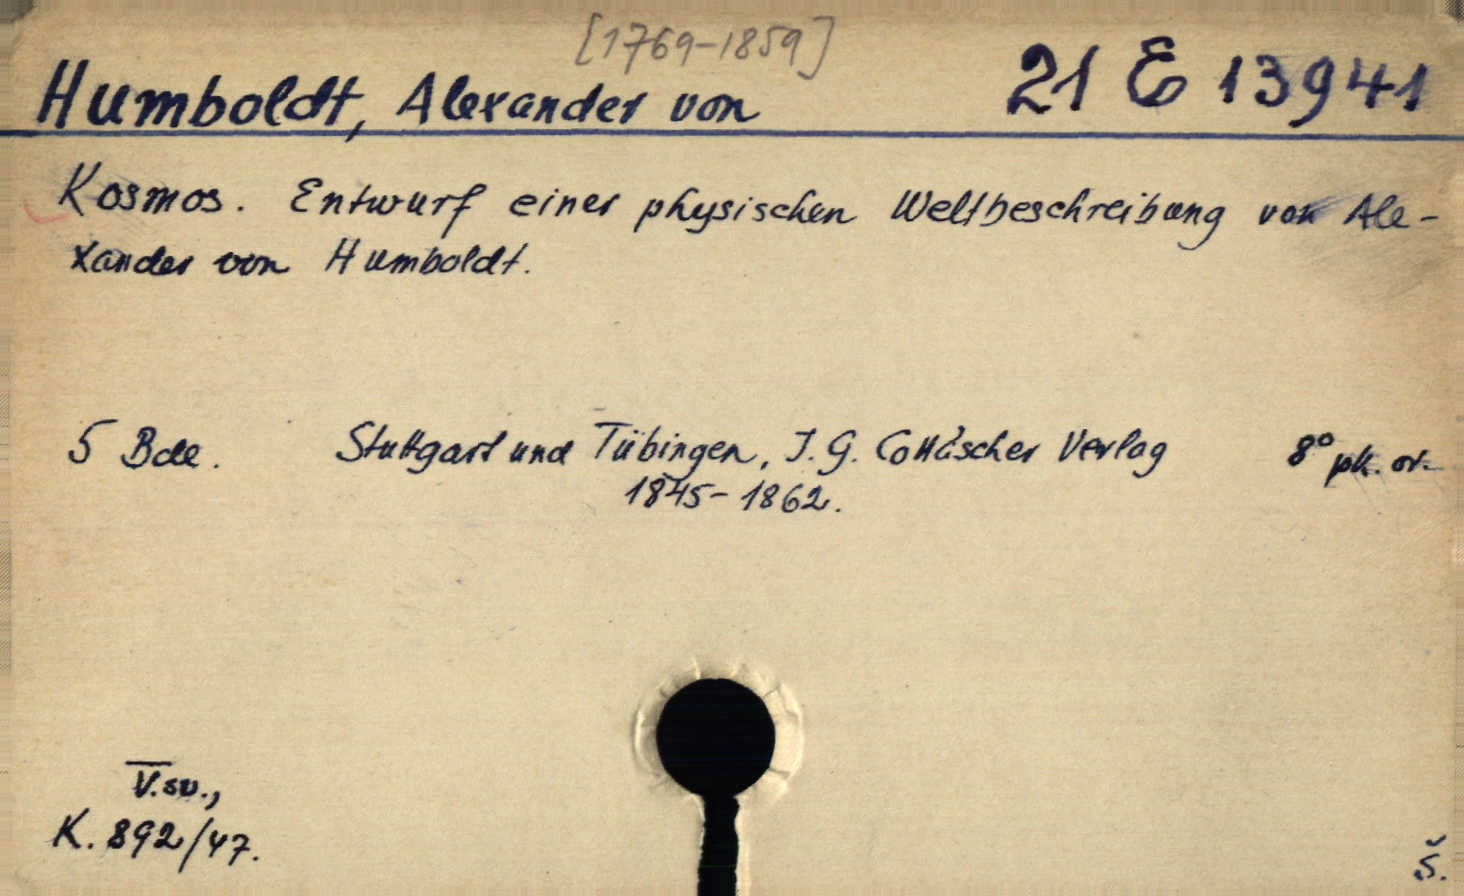 [1769-1859]
Humboldt, Alexander von 21 E 13941
Kosmos. Entwurf einer physischen Weltbeschreibung von Ale-
xander von Humboldt.
5 Bde. Stuttgart und Tübingen, J. G. Cotta'scher Verlag 8°
1845-1862.
V. sv.,
K. 892/47.
Š.